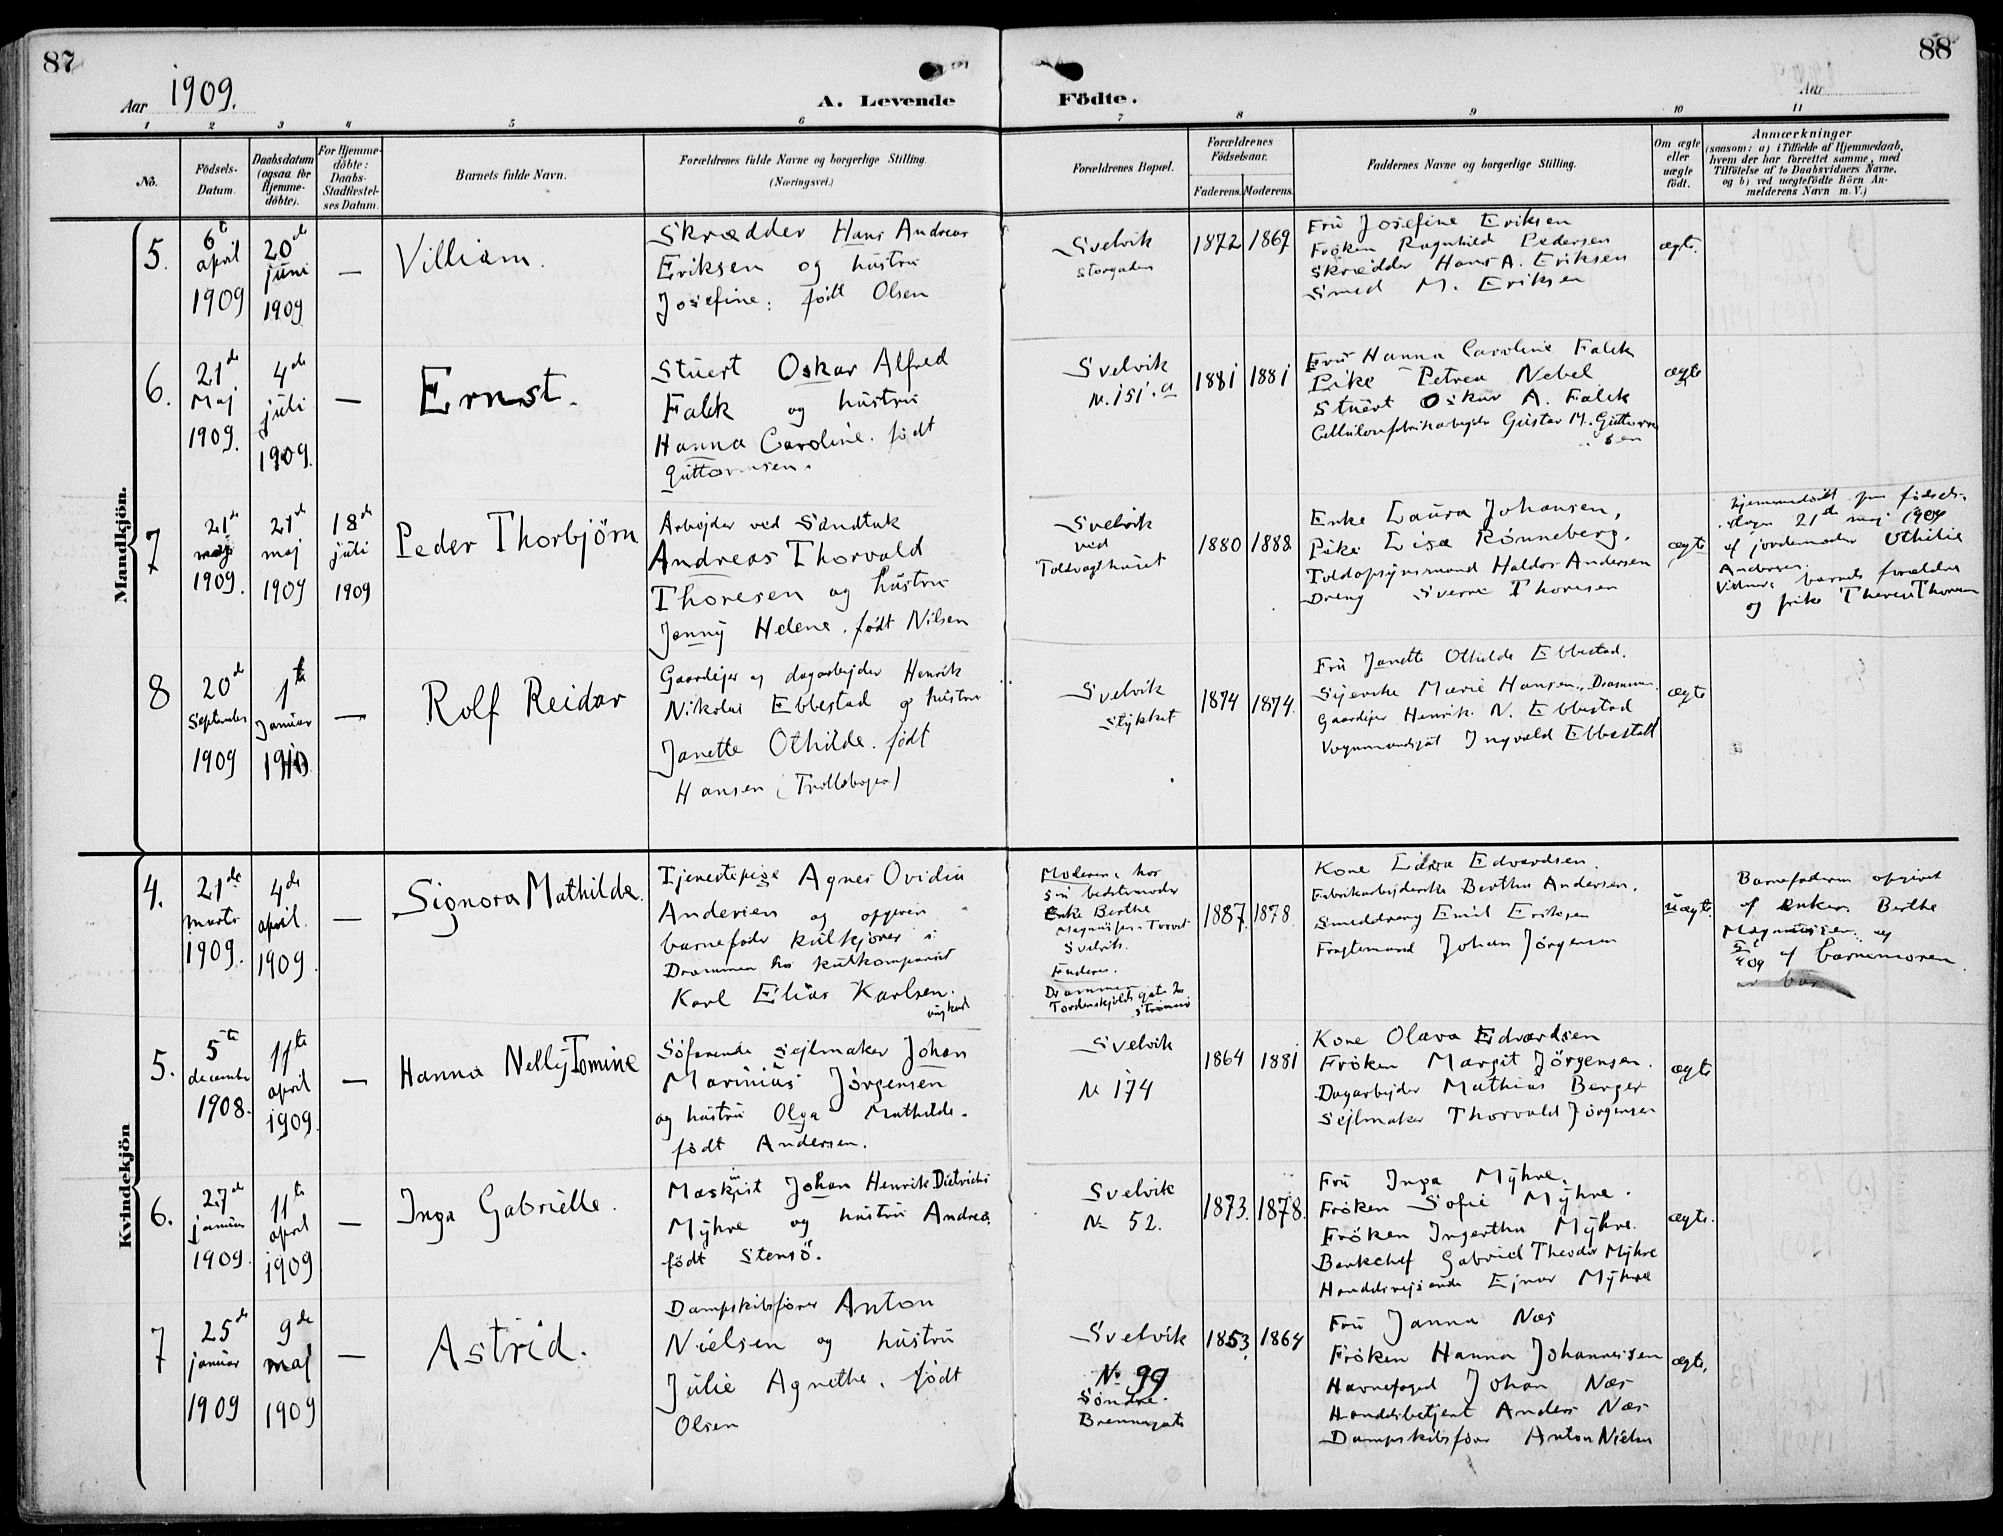 87
88
Aar 1909.
A. Levende Födte.
Aar
1 2 3 4 5 6 7 8 9 10 11
No.
Födsels-
Datum.
Daabsdatum
(ogsaa for
Hjemme-
döbte).
For Hjemme-
döbte:
Daabs-
Stadfæstel-
ses Datum.
Barnets fulde Navn.
Forældrenes fulde Navne og borgerlige Stilling.
(Næringsvei.)
Forældrenes Bopæl.
Forældrenes
Födselsaar.
Faderens. Moderens.
Faddernes Navne og borgerlige Stilling.
Om ægte
eller
uægte
födt.
Anmærkninger
(saasom: a) i Tilfælde af Hjemmedaab,
hvem der har forrettet samme, med
Tilföielse af to Daabsvidners Navne.
og b) ved uægtefödte Börn An-
melderens Navn m. V.)
Mandkjön.
5.
6te
april
1909
20de
juni
1909
—
Villiam.
Skrædder Hans Andreas
Eriksen og hustru
Josefine. født Olsen
Svelvik
Storgaden
1872
1869
Fru Josefine Eriksen
Frøken Ragnhild Pedersen
Skrædder Hans A. Eriksen
Smed M. Eriksen
ægte.
6.
21de
Maj
1909.
4de
juli
1909.
—
Ernst.
Stuert Oskar Alfred
Falck og hustru
Hanna Caroline. født
Guttormsen.
Svelvik
No. 151. a
1881
1881
Fru Hanna Caroline Falck
Pike Petrea Nebel
Stuert Oskar A. Falck
Cellulosefabrikarbejder Gustav M. Guttorm
sen
ægte
7
21de
maj
1909.
21de
maj
1909
18de
juli
1909
Peder Thorbjörn
Arbejder ved Sandtak
Andreas Thorvald
Thoresen og hustru
Jenny Helene. født Nilsen
Svelvik
ved
Toldvagthuset
1880
1888
Enke Laura Johansen,
Pike Lisa Rønneberg,
Toldopsynsmand Haldor Andersen
Dreng Sverre Thoresen
ægte
Hjemmedøbt paa fødsels-
dagen 21de maj 1909
af jordemoder Othilie
Andersen.
Vidner: barnets forældre
og frk Therese Thoresen
8
20de
September
1909
1te
Januar
1910
—
Rolf Reidar
Gaardejer og dagarbejder Henrik
Nikolai Ebbestad og hustru
Janette Othilde. født
Hansen (Trolldbogen)
Svelvik
Stykket
1874
1874.
Fru Janette Othilde Ebbestad.
Syerske Marie Hansen, Drammen.
Gaardejer Henrik N. Ebbestad
Vognmandsgut Ingvald Ebbestad
ægte
Kvindekjön
4.
21de
marts
1909.
4de
april
1909.
—
Signora Mathilde.
Tjenestepige Agnes Ovidia
Andersen og opgiven
barnefader kulkjører i
Drammen hos kulkompaniet
Karl Elias Karlsen.
ungkarl
Moderen: hos
sin bedstemoder
Enke Berthe
Magnussen. Torvet
Svelvik.
Faderen.
Drammen
Tordenskjolds gate 2
Strømsø
1887.
1878.
Kone Edvardsen.
Fabrikarbejderske Berthe Andersen.
Smeddreng Emil Eriksen
Fragtemand Johan Jørgensen
uægte.
Barnefaderen opgivet
af enken Berthe
Magnussen. og
af barnemoren.
5.
5te
december
1908.
11te
april
1909.
—
Hanna Nelly Tomine
Søfarende sejlmaker Johan
Marinius Jörgensen
og hustru Olga Mathilde.
født Andersen.
Svelvik
No 174
1864
1881
Kone Olava Edvardsen
Frøken Margit Jörgensen.
Dagarbejder Mathias Berger
Sejlmaker Thorvald Jörgensen
ægte
6.
27de
januar
1909.
11te
april
1909
—
Inga Gabrielle.
Maskinist Johan Henrik Dietrichs
Myhre og hustru Andrea.
født Stensö.
Svelvik
No 52.
1873.
1878.
Fru Inga Myhre.
Frøken Sofie Myhre.
Frøken Ingertha Myhre.
Bankchef Gabriel Theodor Myhre
Handelsrejsende Ejnar Myhre
ægte.
7
25de
januar
1909
9de
maj
1909
—
Astrid.
Dampskibsfører Anton
Nielsen og hustru
Julie Agnethe. født
Olsen
Svelvik
No 99
Söndre.
Brennagate
1853.
1864
Fru Janna Næs
Frøken Hanna Johannessen
Havnefoged Johan Næs
Handelsbetjent Anders Næs
Dampskibsfører Anton Nielsen
ægte.